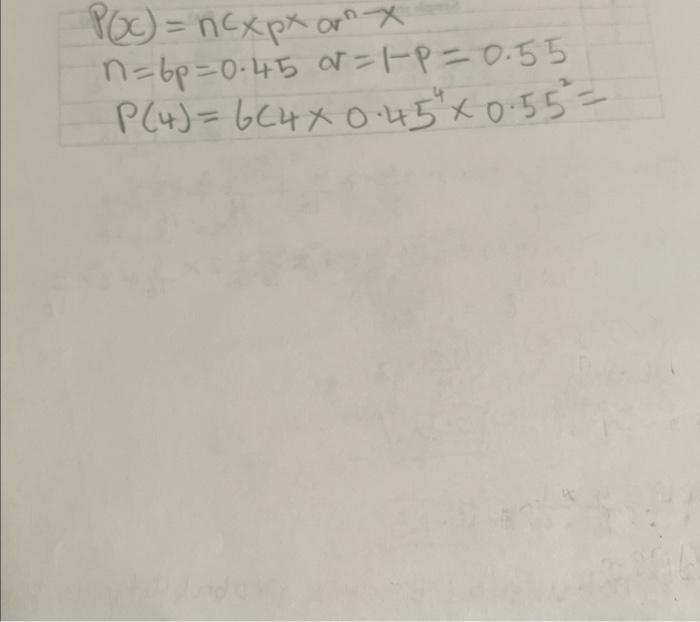 P(x) = nCxpˣ qⁿ⁻ˣ
n=6p=0.45 q=1-p=0.55
P(4)= 6C4×0.45⁴×0.55²=